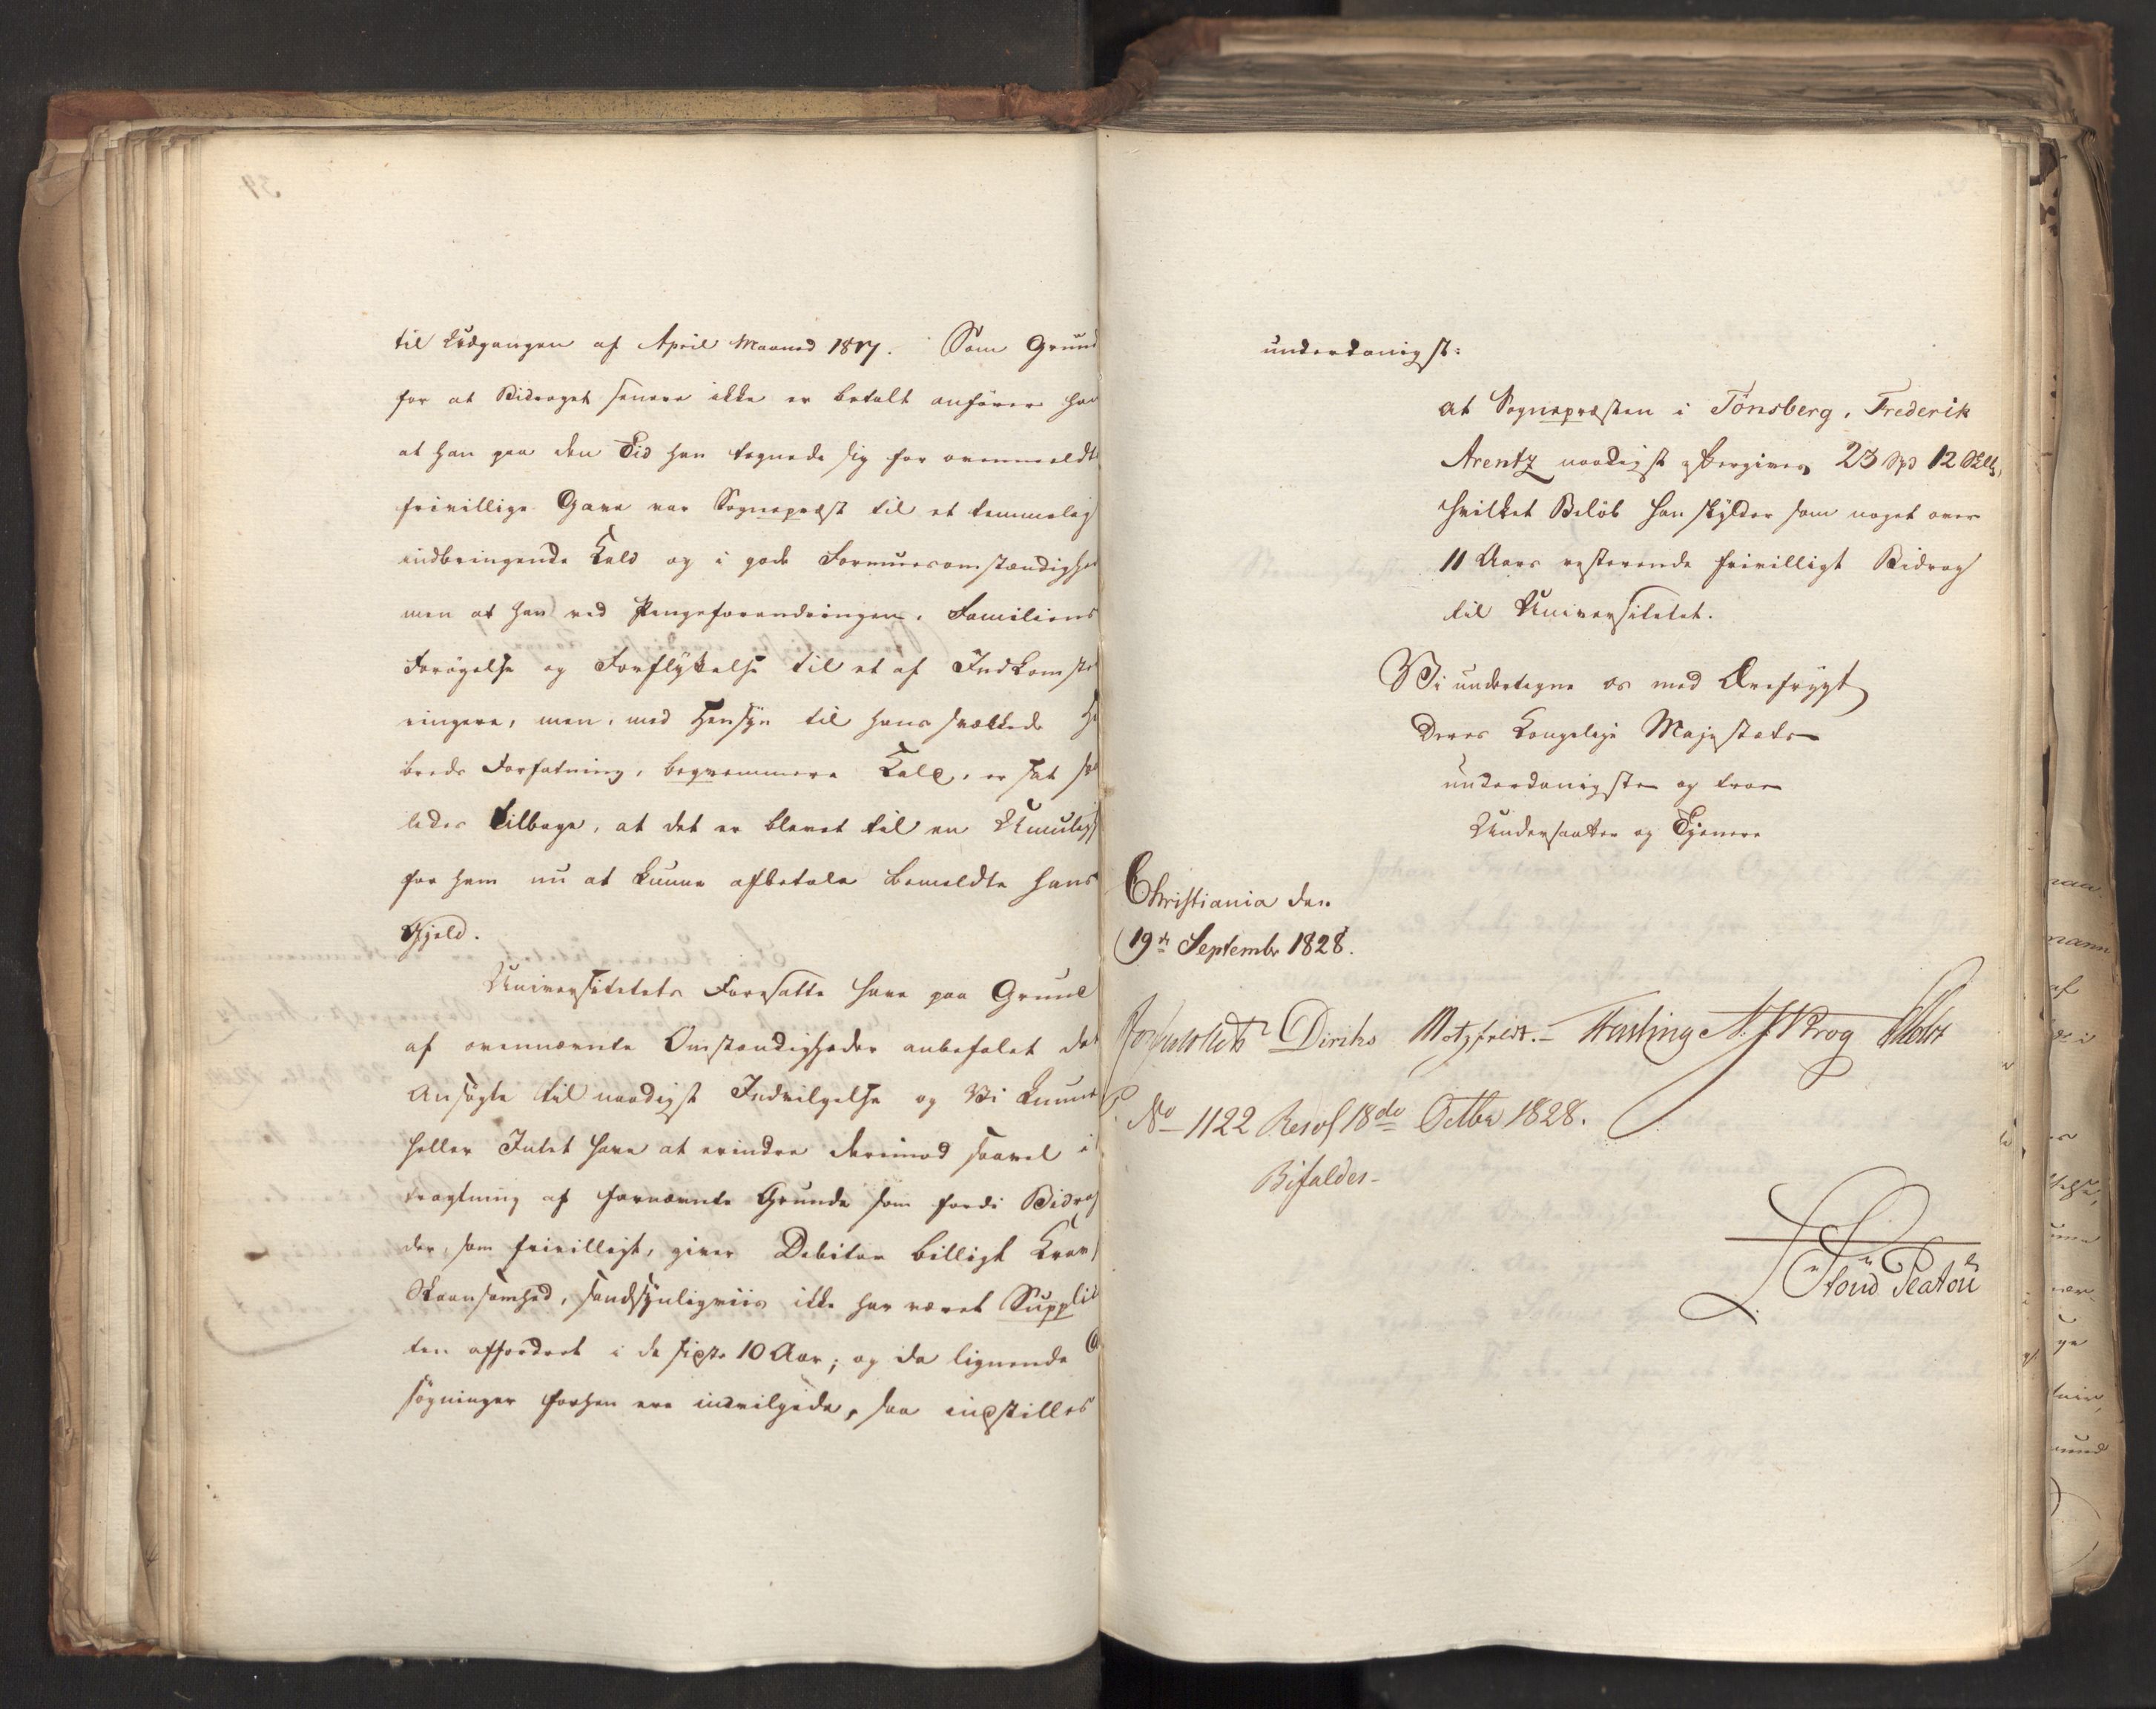 til Udgangen af April Maaned 1817. Som Grund
for at Bidraget senere ikke er betalt anfører han
at han paa den Tid han tegnede sig for ovenmeldte
frivillige Gave var Sognepræst til et temmelig
indbringende Kald og i gode Formuesomstændighe
men at han ved Pengeforandringen, Familiens
Forøgelse og Forflyttelse til et af Indkomster
ringere, men, med Hensyn til hans svækkede He
breds Forfatning, beqvemmere Kald, er sat saa
ledes tilbage, at det er blevet til en Umulig
for ham nu at kunne afbetale bemeldte hans
Gjeld.
Universitetets Foresatte have paa Grund
af ovennævnte Omstændigheder anbefalet det
Ansøgte til naadigst Indvilgelse og Vi kunne
heller Intet have at erindre derimod saavel i
tragtning af fornævnte Grunde som fordi Bidrag
der, som frivilligt, giver Debitor billigt Krav
Skaansomhed, sandsynligviis ikke har været Suppli
ten affordret i de sidste 10 Aar; og da lignende
søgninger forhen ere indvilgede, saa indstilles
underdanigst:
at Sognepræsten i Tønsberg, Frederik
Arentz naadigst eftergives 23 Spd 12 Sk,
hvilket Beløb han skylder som noget over
11 Aars resterende frivilligt Bidrag
til Universitetet.
Vi undertegne os med Ærefrygt
Deres Kongelige Majestæts
underdanigste og troe
Undersaatter og Tjenere
Christiania den
19de September 1828.
Diriks Motzfeldt. Fasting N. J. Krog
No 1122 Resol 18de Octbr 1828.
Bifaldes